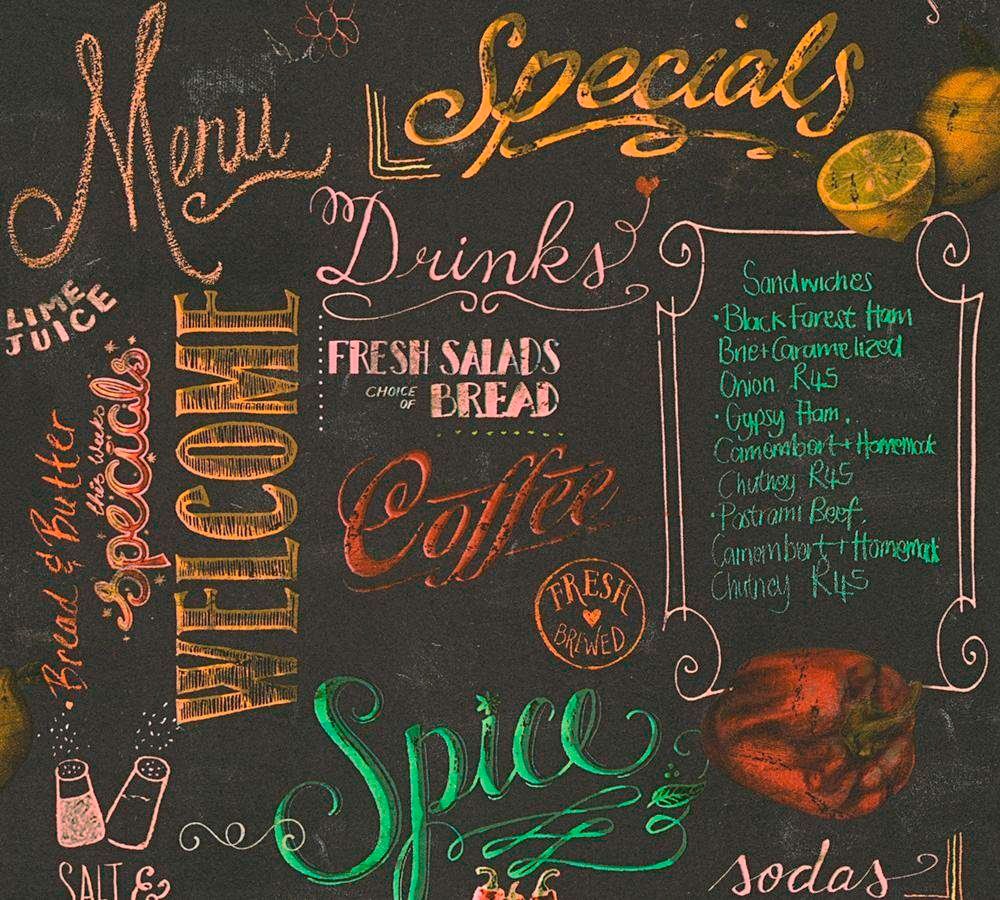 Menu
Specials
Drinks
LIME
JUICE
FRESH SALADS
CHOICE
OF
BREAD
this weeks
Specials
Bread & Butter
WELCOME
Coffee
FRESH
BREWED
Sandwiches
·Black Forest Ham
Brie+Caramelized
Onion R45
·Gypsy Ham.
Camembert+Homemade
Chutney R45
·Pastrami Beef.
Camembert+Homemade
Chutney R45
Spice
SALT &
sodas